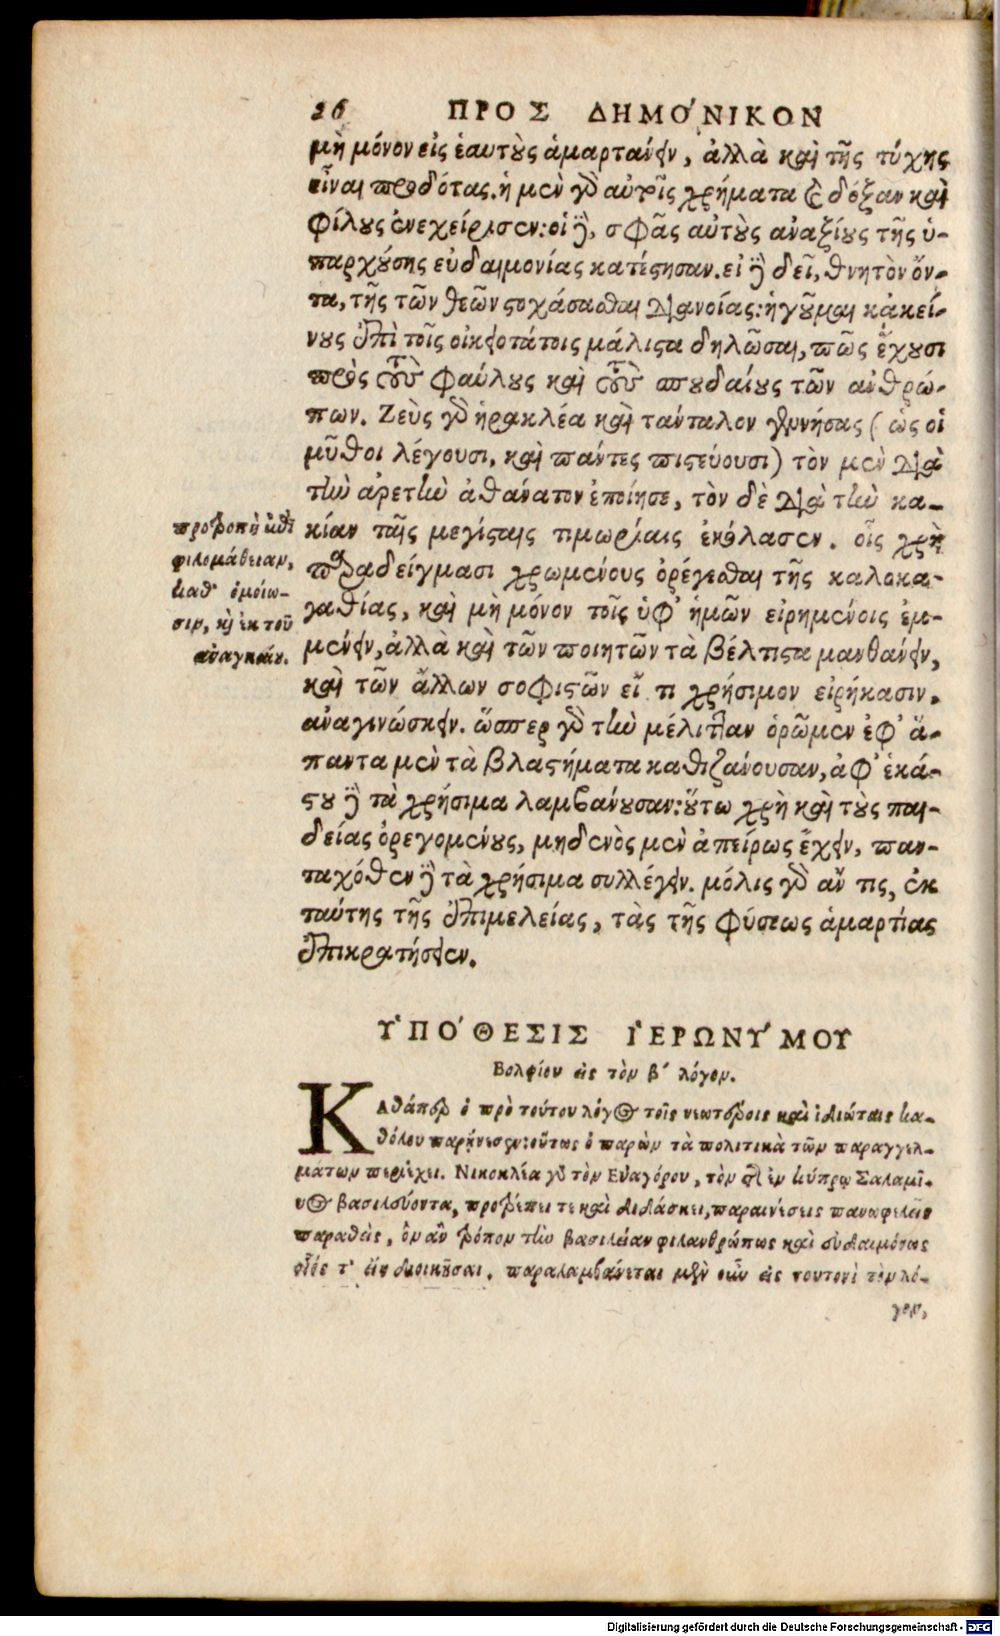 26 ΠΡΟΣ ΔΗΜΟ΄ΝΙΚΟΝ
μὴ μόνον εἰς ἑαυτοὺς ἁμαρτάνειν, ἀλλὰ καὶ τῆς τύχης
εἶναι προδότας. ἡ μὲν γὰρ αὐτοῖς χρήματα καὶ δόξαν καὶ
φίλους ἐνεχείρισεν: οἱ δὲ, σφᾶς αὐτοὺς ἀναξίους τῆς ὑ-
παρχούσης εὐδαιμονίας κατέστησαν. εἰ δὲ δεῖ, θνητὸν ὄν-
τα, τῆς τῶν θεῶν στοχάσασθαι διανοίας: ἡγοῦμαι κἀκεί-
νους ἐπὶ τοῖς οἰκειοτάτοις μάλιστα δηλῶσαι, πῶς ἔχουσι
πρὸς τοὺς φαύλους καὶ τοὺς σπουδαίους τῶν ἀνθρώ-
πων. Ζεὺς γὰρ ἡρακλέα καὶ τάνταλον γεννήσας (ὡς οἱ
μῦθοι λέγουσι, καὶ πάντες πιστεύουσι) τὸν μὲν διὰ
τὴν ἀρετὴν ἀθάνατον ἐποίησε, τὸν δὲ διὰ τὴν κα-
κίαν ταῖς μεγίσταις τιμωρίαις ἐκόλασεν. οἷς χρὴ
παραδείγμασι χρωμένους ὀρέγεσθαι τῆς καλοκα-
γαθίας, καὶ μὴ μόνον τοῖς ὑφ' ἡμῶν εἰρημένοις ἐμ-
μένειν, ἀλλὰ καὶ τῶν ποιητῶν τὰ βέλτιστα μανθάνειν,
καὶ τῶν ἄλλων σοφιστῶν εἴ τι χρήσιμον εἰρήκασιν,
ἀναγινώσκειν. ὥσπερ γὰρ τὴν μέλιτταν ὁρῶμεν ἐφ' ἅ-
παντα μὲν τὰ βλαστήματα καθιζάνουσαν, ἀφ' ἑκά-
στου δὲ τὰ χρήσιμα λαμβάνουσαν: οὕτω χρὴ καὶ τοὺς παι-
δείας ὀρεγομένους, μηδενὸς μὲν ἀπείρως ἔχειν, παν-
ταχόθεν δὲ τὰ χρήσιμα συλλέγειν. μόλις γὰρ ἄν τις, ἐκ
ταύτης τῆς ἐπιμελείας, τὰς τῆς φύσεως ἁμαρτίας
ἐπικρατήσειεν.
προτροπὴ ἐπὶ
φιλομάθειαν,
καθ' ὁμοίω-
σιν, καὶ ἐκ τοῦ
ἀναγκαίου.
ΥΠΟ΄ΘΕΣΙΣ ἹΕΡΩΝΥ΄ΜΟΥ
Βολφίου εἰς τὸν β΄ λόγον.
ΚΑθάπερ ὁ πρὸ τούτου λόγος τοῖς νεωτέροις καὶ ἰδιώταις κα-
θόλου παρῄνεσεν: οὕτως ὁ παρὼν τὰ πολιτικὰ τῶν παραγγελ-
μάτων περιέχει. Νικοκλέα γὰρ τὸν Εὐαγόρου, τὸν τῆς ἐν κύπρῳ Σαλαμῖ-
νος βασιλεύοντα, προτρέπει τε καὶ διδάσκει, παραινέσεις πανωφελεῖς
παραθεὶς, ὃν ἂν τρόπον τὴν βασιλείαν φιλανθρώπως καὶ εὐδαιμόνως
οἷός τ' εἴη διοικῆσαι. παραλαμβάνεται μὲν οὖν εἰς τουτονὶ τὸν λό-
γον,
Digitalisierung gefördert durch die Deutsche Forschungsgemeinschaft - DFG